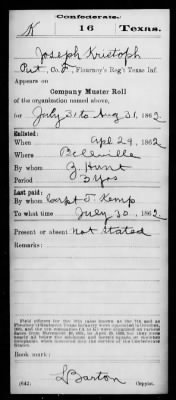 Confederate.
K 16 Texas.
Joseph Kristoph
Pvt, Co. F, Flournoy's Reg't Texas Inf.
Appears on
Company Muster Roll
of the organization named above,
for July 3 to Aug 31, 1862
Enlisted:
When Apl 29, 1862
Where Bellville
By whom Z. Hunt
Period 3 Yrs
Last paid:
By whom Capt T. Kemp
To what time July 30, 1862
Present or absent Not Stated
Remarks:
Book mark:
(642) L Barton
Copyist.